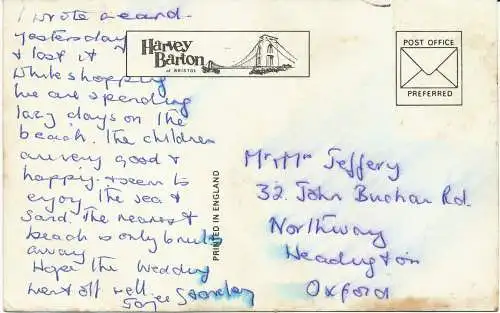 I wrote a card
yesterday
& lost it
while shopping
We are spending
lazy days on the
beach. The children
are very good &
happy & seem to
enjoy the sea &
sand. The nearest
beach is only 6 miles
away
Hope the Wedding
went off well.
Harvey
Barton
of BRISTOL
POST OFFICE
PREFERRED
PRINTED IN ENGLAND
Mr & Mrs Jeffery
32. John Buchan Rd.
Northway
Headington
Oxford